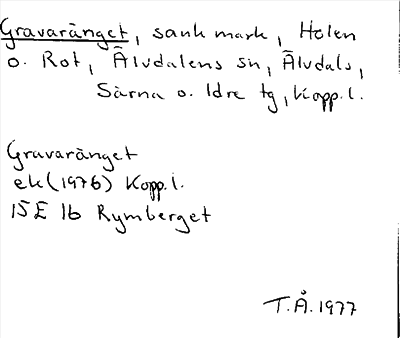 Gravaränget, sank mark, Holen
o. Rot, Älvdalens sn, Älvdals,
Särna o. Idre tg, Kopp.l.
Gravaränget
ek (1976) Kopp.l.
15E 1b Rymberget
T.Å. 1977